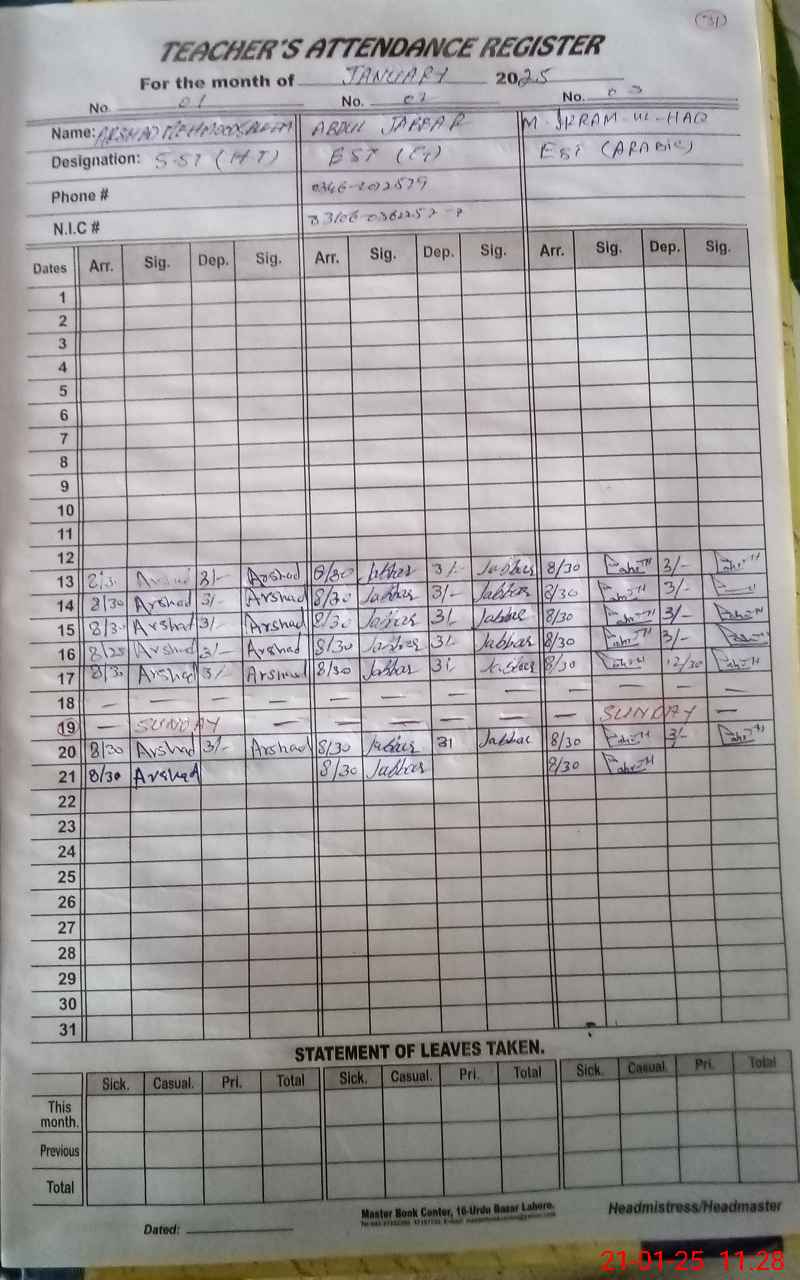 31
TEACHER'S ATTENDANCE REGISTER
For the month of JANUARY 2025
No. 01 No. 02 No. 03
Name: ARSHAD MEHMOOD ABDUL JABBAR M. IKRAM-UL-HAQ
Designation: S.ST (H.T) EST ( EST (ARABIC)
Phone #
N.I.C #
Dates Arr. Sig. Dep. Sig. Arr. Sig. Dep. Sig. Arr. Sig. Dep. Sig.
1
2
3
4
5
6
7
8
9
10
11
12
13 8/3 Arshad 3/- Arshad 8/30 Jabbar 3/- Jabbar 8/30 3/-
14 8/30 Arshad 3/- Arshad 8/30 Jabbar 3/- Jabbar 8/30 3/-
15 8/30 Arshad 3/- Arshad 8/30 Jabbar 3/- Jabbar 8/30 3/-
16 8/25 Arshad 3/- Arshad 8/30 Jabbar 3/- Jabbar 8/30 3/-
17 8/30 Arshad 3/- Arshad 8/30 Jabbar 3/- Jabbar 8/30 12/30
18 — — — — — — — — — — — —
19 — SUNDAY — — — — — — SUNDAY —
20 8/30 Arshad 3/- Arshad 8/30 Jabbar 3/ Jabbar 8/30 3/-
21 8/30 Arshad 8/30 Jabbar 8/30
22
23
24
25
26
27
28
29
30
31
STATEMENT OF LEAVES TAKEN.
Sick. Casual. Pri. Total Sick. Casual. Pri. Total Sick. Casual. Pri. Total
This
month.
Previous
Total
Master Book Center, 16-Urdu Bazar Lahore. Headmistress/Headmaster
Dated:
21-01-25 11:28